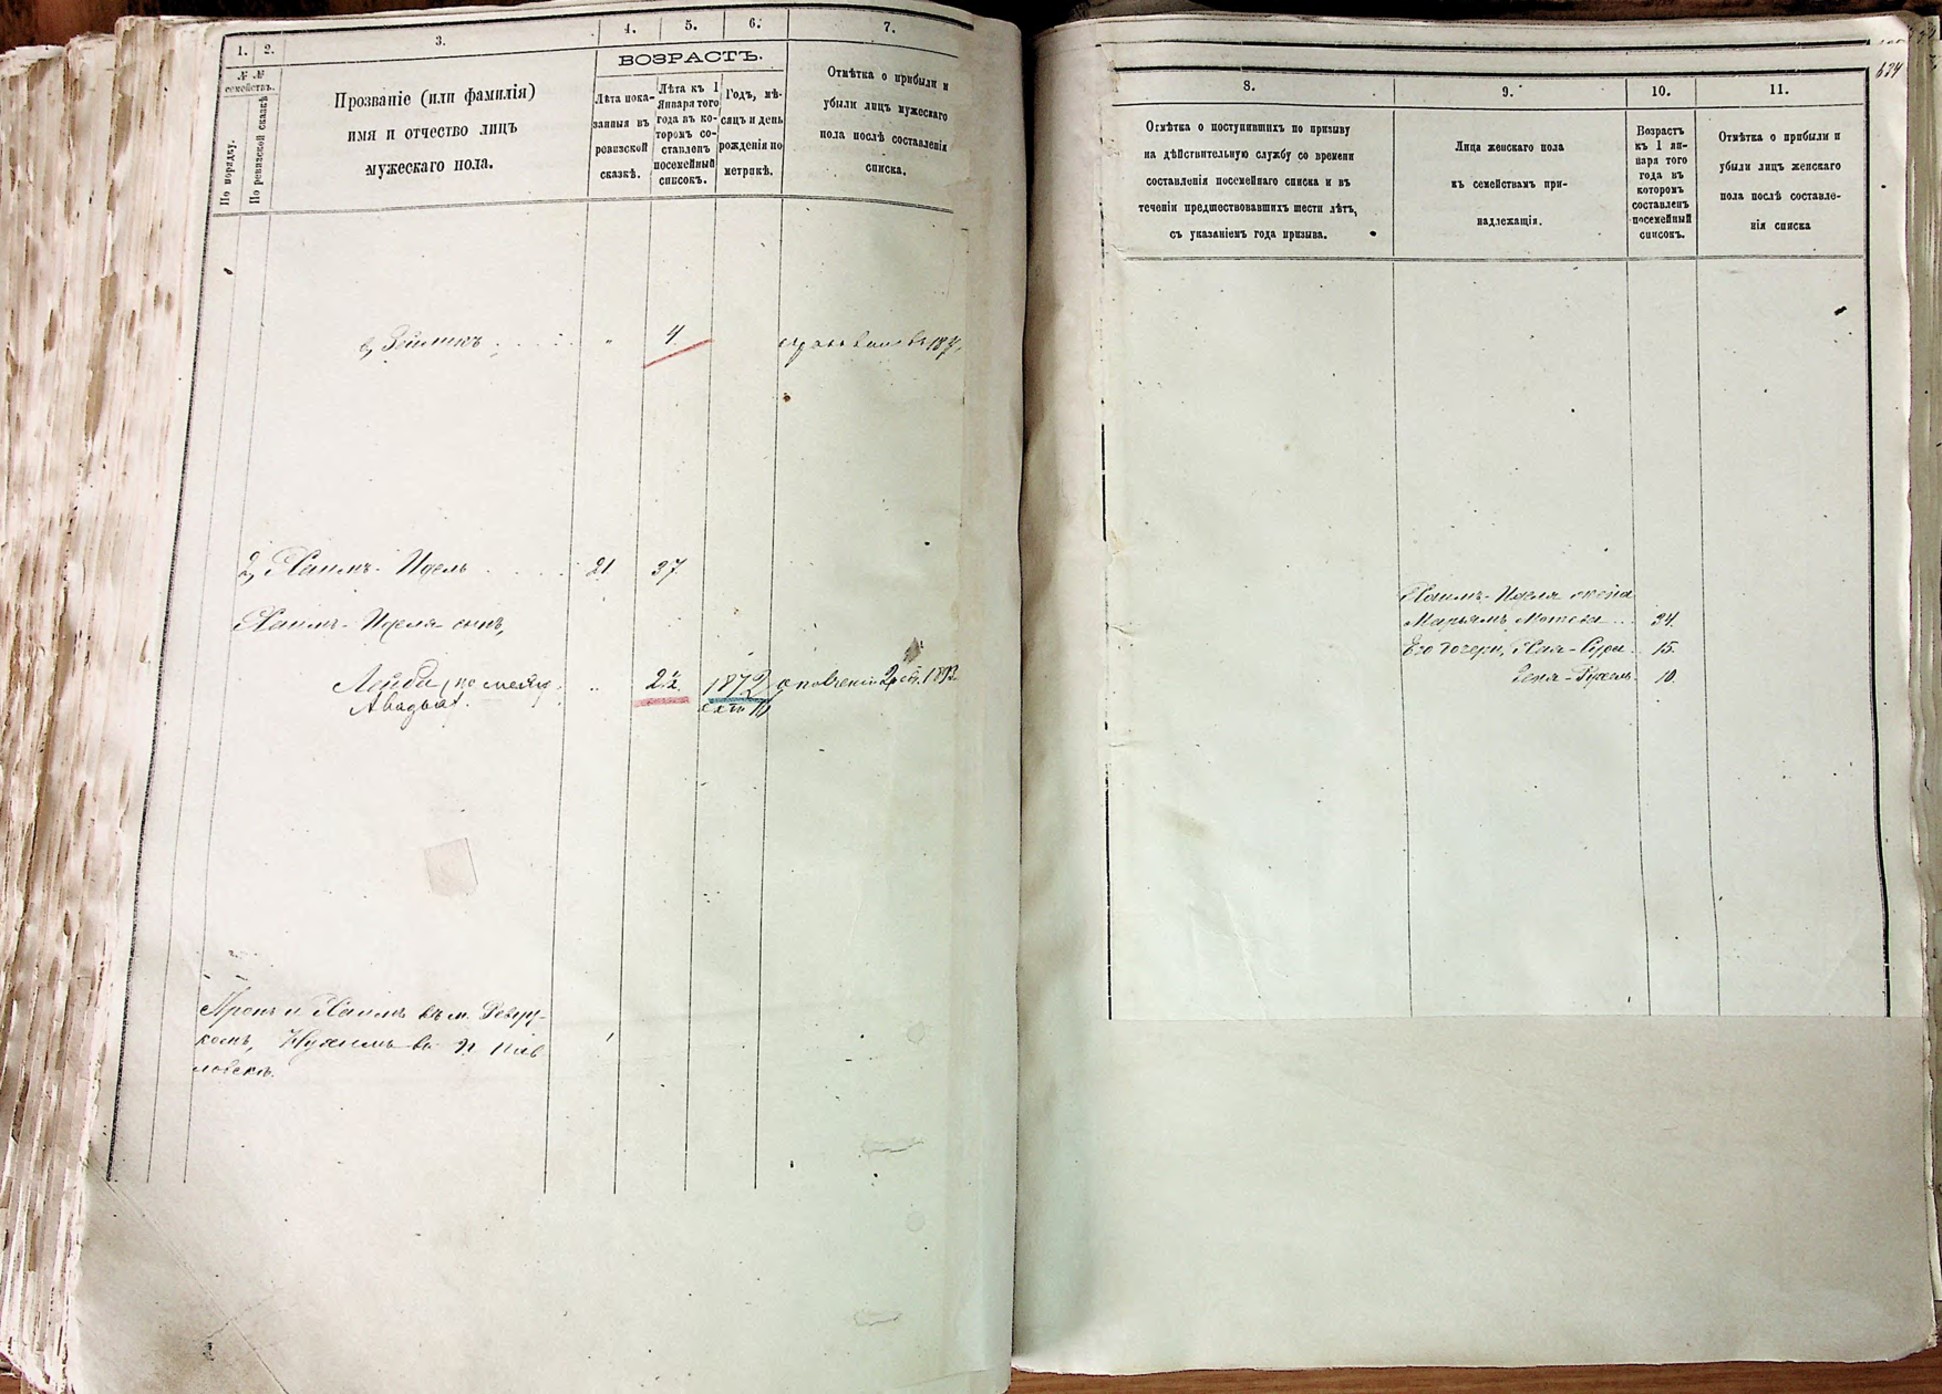 1.
2.
3.
4.
5.
6.
7.
№ №
семействъ.
По порядку.
По ревизской сказкѣ
Прозваніе (или фамилія)
имя и отчество лицъ
мужескаго пола.
ВОЗРАСТЪ.
Лѣта пока-
занныя въ
ревизской
сказкѣ.
Лѣта къ 1
Января того
года въ ко-
торомъ со-
ставленъ
посемейный
списокъ.
Годъ, мѣ-
сяцъ и день
рожденія по
метрикѣ.
Отмѣтка о прибыли и
убыли лицъ мужескаго
пола послѣ составленія
списка.
4.
2, Хаимъ-Идель 21. 37.
Хаимъ-Иделя сынъ,
Лейба 2½ 1872
въ м.
Нухимъ въ
634
8.
9.
10.
11.
Отмѣтка о поступившихъ по призыву
на дѣйствительную службу со времени
составленія посемейнаго списка и въ
теченіи предшествовавшихъ шести лѣтъ,
съ указаніемъ года призыва.
Лица женскаго пола
къ семействамъ при-
надлежащія.
Возрастъ
къ 1 ян-
варя того
года въ
которомъ
составленъ
посемейный
списокъ.
Отмѣтка о прибыли и
убыли лицъ женскаго
пола послѣ составле-
нія списка
Хаимъ-Иделя жена
Марьямъ 34.
Его дочери, Хая-Сура 15.
10.